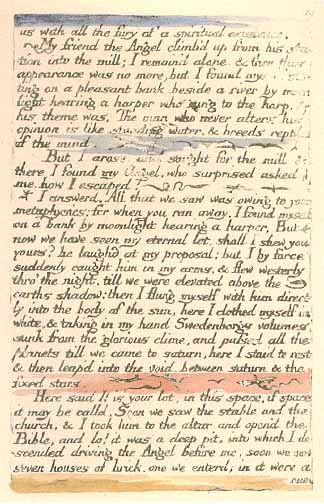 us with all the fury of a spiritual existence.
My friend the Angel climb'd up from his sta-
tion into the mill; I remain'd alone, & then this
appearance was no more, but I found my sit-
ting on a pleasant bank beside a river by moon
light hearing a harper who sung to the harp, &
his theme was, The man who never alters his
opinion is like standing water, & breeds reptil
of the mind.
But I arose, and sought for the mill &
there I found my Angel, who surprised asked
me, how I escaped?
I answerd, All that we saw was owing to your
metaphysics; for when you ran away, I found myself
on a bank by moonlight hearing a harper, But
now we have seen my eternal lot, shall I shew you
yours? he laughd at my proposal; but I by force
suddenly caught him in my arms, & flew westerly
thro' the night, till we were elevated above the
earths shadow: then I flung myself with him direct
ly into the body of the sun, here I clothed myself in
white, & taking in my hand Swedenborgs volumes
sunk from the glorious clime, and passed all the
planets till we came to saturn, here I staid to rest
& then leap'd into the void, between saturn & the
fixed stars.
Here said I! is your lot, in this space, if space
it may be calld, Soon we saw the stable and the
church, & I took him to the altar and open'd the
Bible, and lo! it was a deep pit, into which I de-
scended driving the Angel before me, soon we saw
seven houses of brick, one we enterd; in it were a